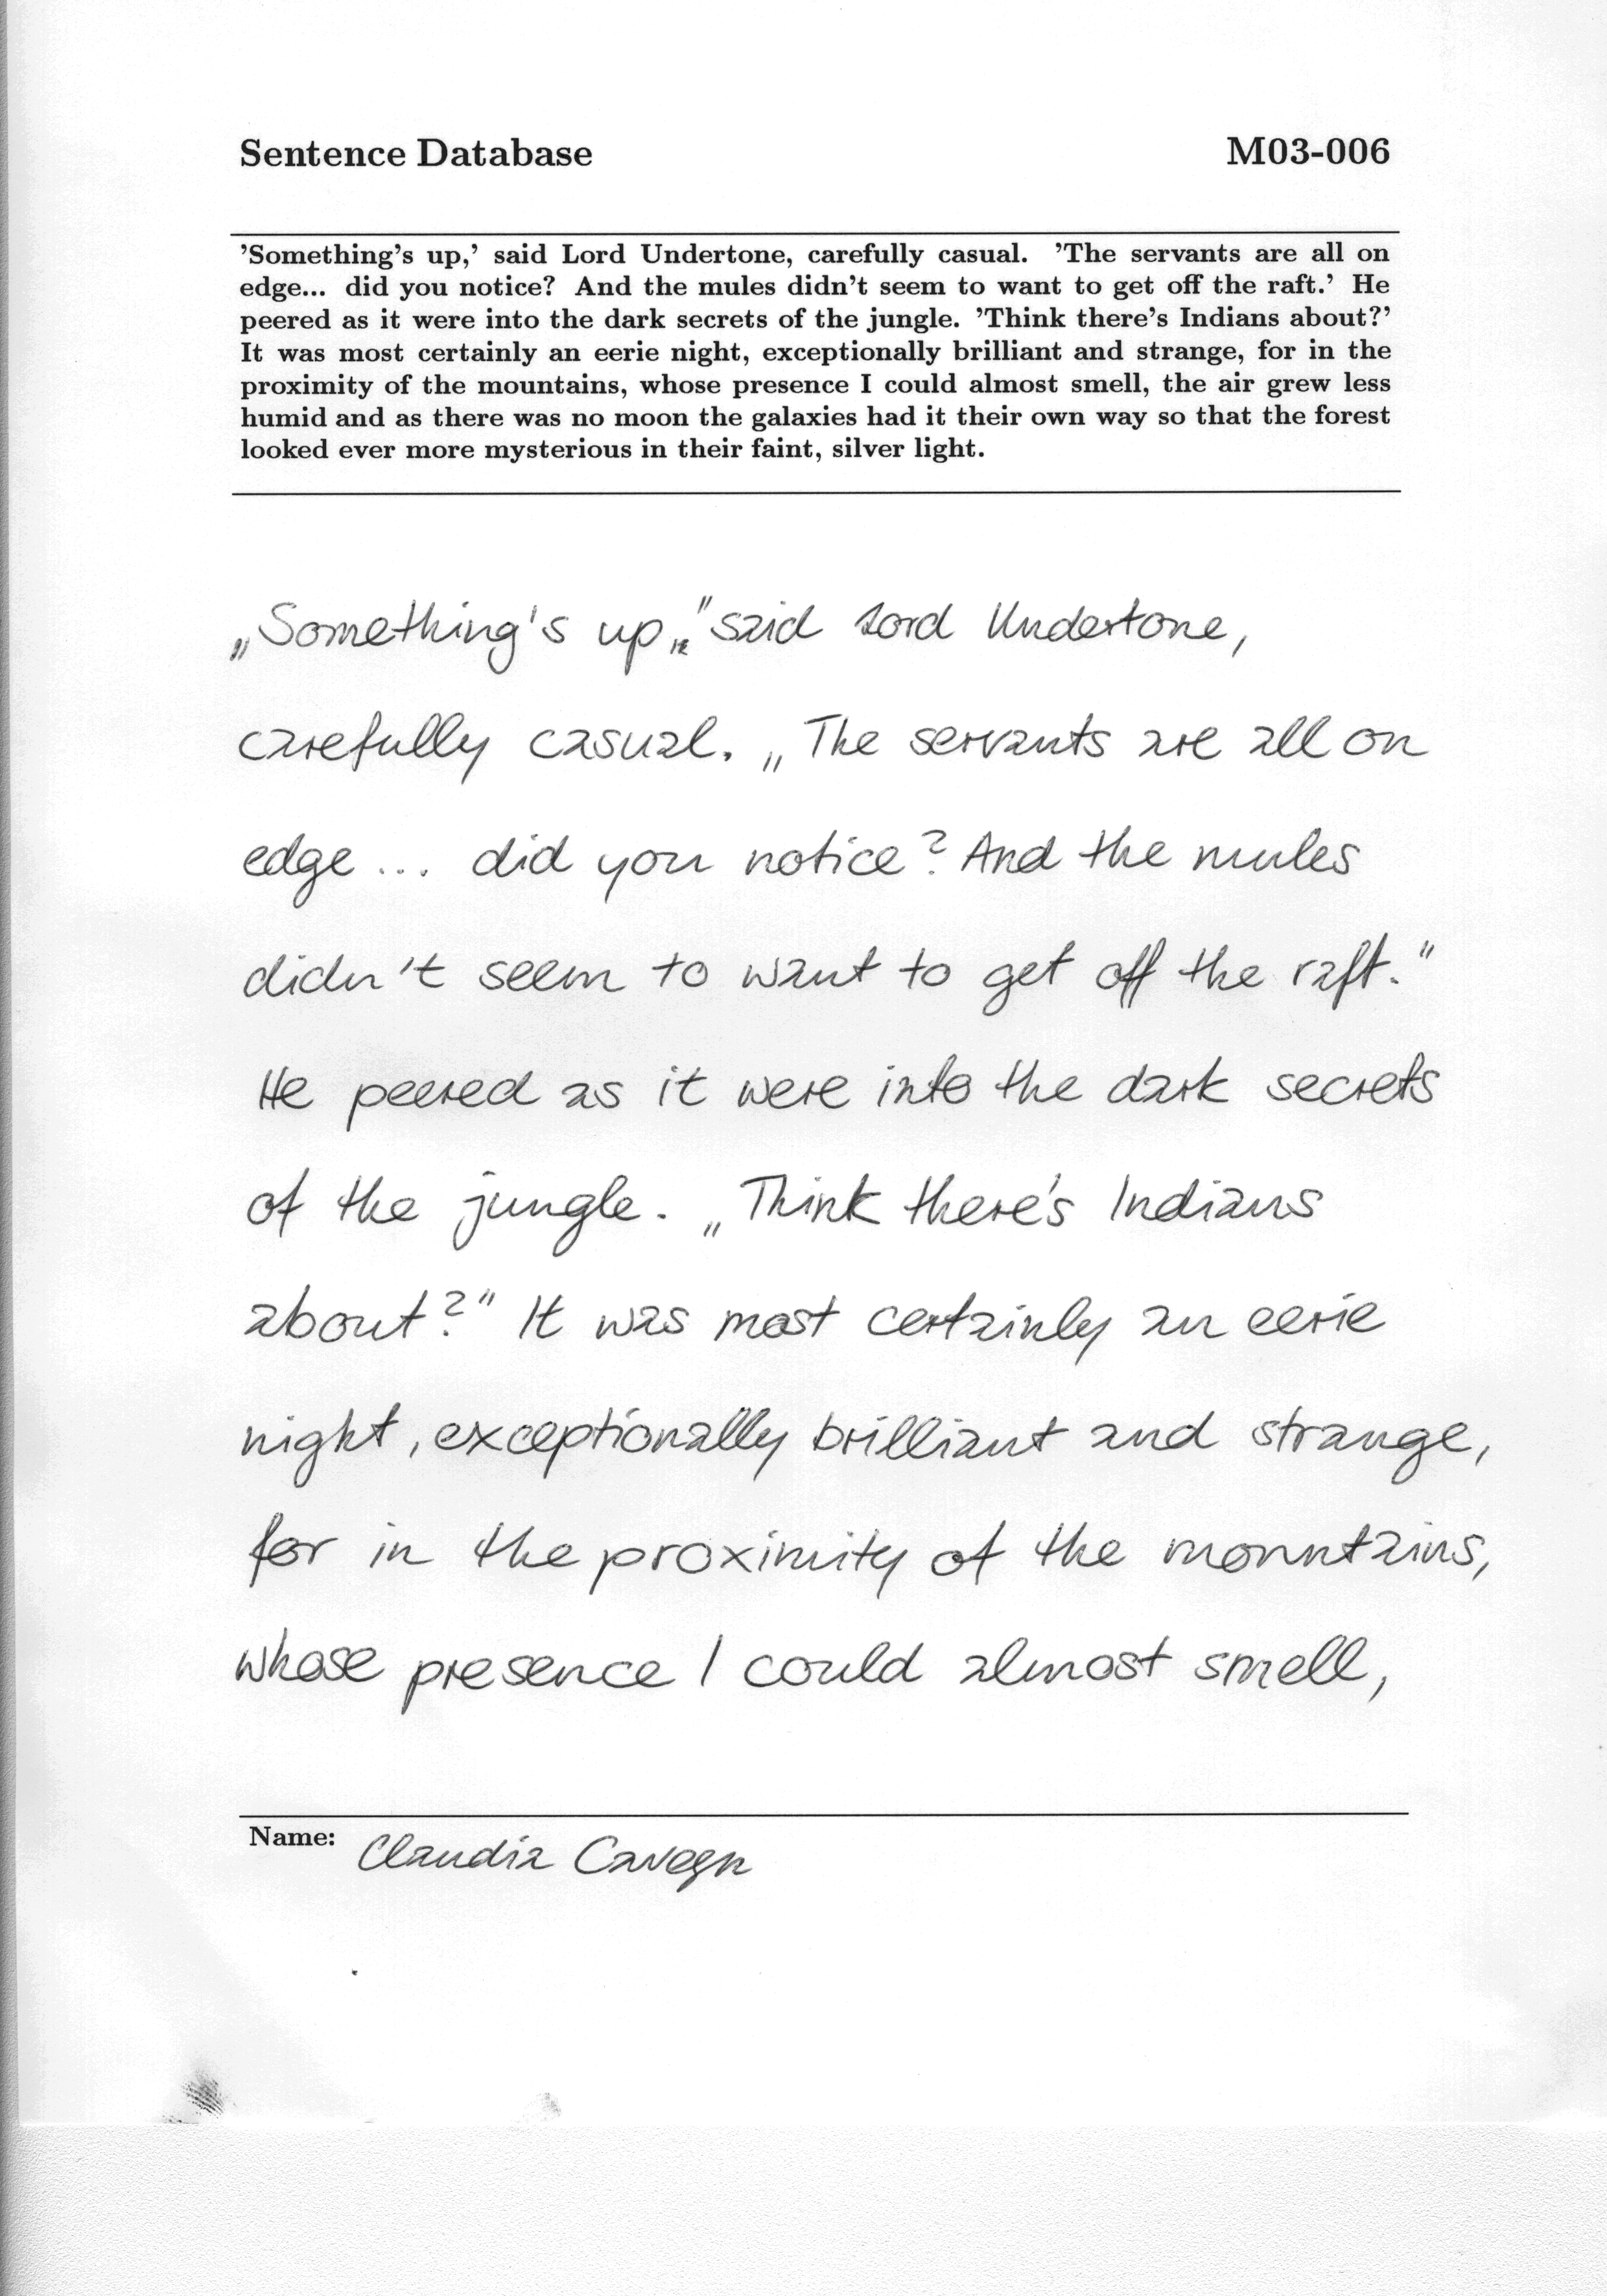 Sentence Database M03-006
’Something’s up,’ said Lord Undertone, carefully casual. ’The servants are all on
edge... did you notice? And the mules didn’t seem to want to get off the raft.’ He
peered as it were into the dark secrets of the jungle. ’Think there’s Indians about?’
It was most certainly an eerie night, exceptionally brilliant and strange, for in the
proximity of the mountains, whose presence I could almost smell, the air grew less
humid and as there was no moon the galaxies had it their own way so that the forest
looked ever more mysterious in their faint, silver light.
„Something's up," said Lord Undertone,
carefully casual. „The servants are all on
edge ... did you notice? And the mules
didn't seem to want to get off the raft."
He peered as it were into the dark secrets
of the jungle. „Think there's Indians
about?" It was most certainly an eerie
night, exceptionally brilliant and strange,
for in the proximity of the mountains,
whose presence I could almost smell,
Name: Claudia Cavegn